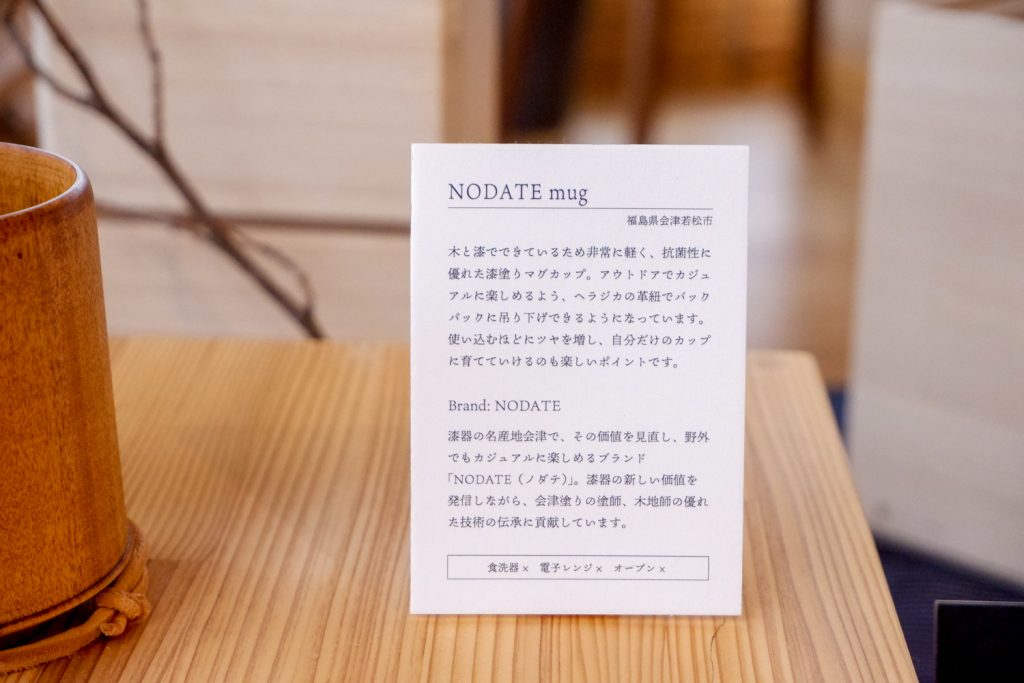 NODATE mug
福島県会津若松市
木と漆でできているため非常に軽く、抗菌性に
優れた漆塗りマグカップ。アウトドアでカジュ
アルに楽しめるよう、ヘラジカの革紐でバック
パックに吊り下げできるようになっています。
使い込むほどにツヤを増し、自分だけのカップ
に育てていけるのも楽しいポイントです。
Brand: NODATE
漆器の名産地会津で、その価値を見直し、野外
でもカジュアルに楽しめるブランド
「NODATE（ノダテ）」。漆器の新しい価値を
発信しながら、会津塗りの塗師、木地師の優れ
た技術の伝承に貢献しています。
食洗器× 電子レンジ× オーブン×